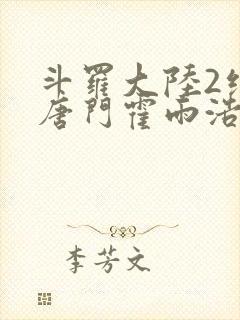 斗羅大陸2
唐門霍雨浩
李芳文